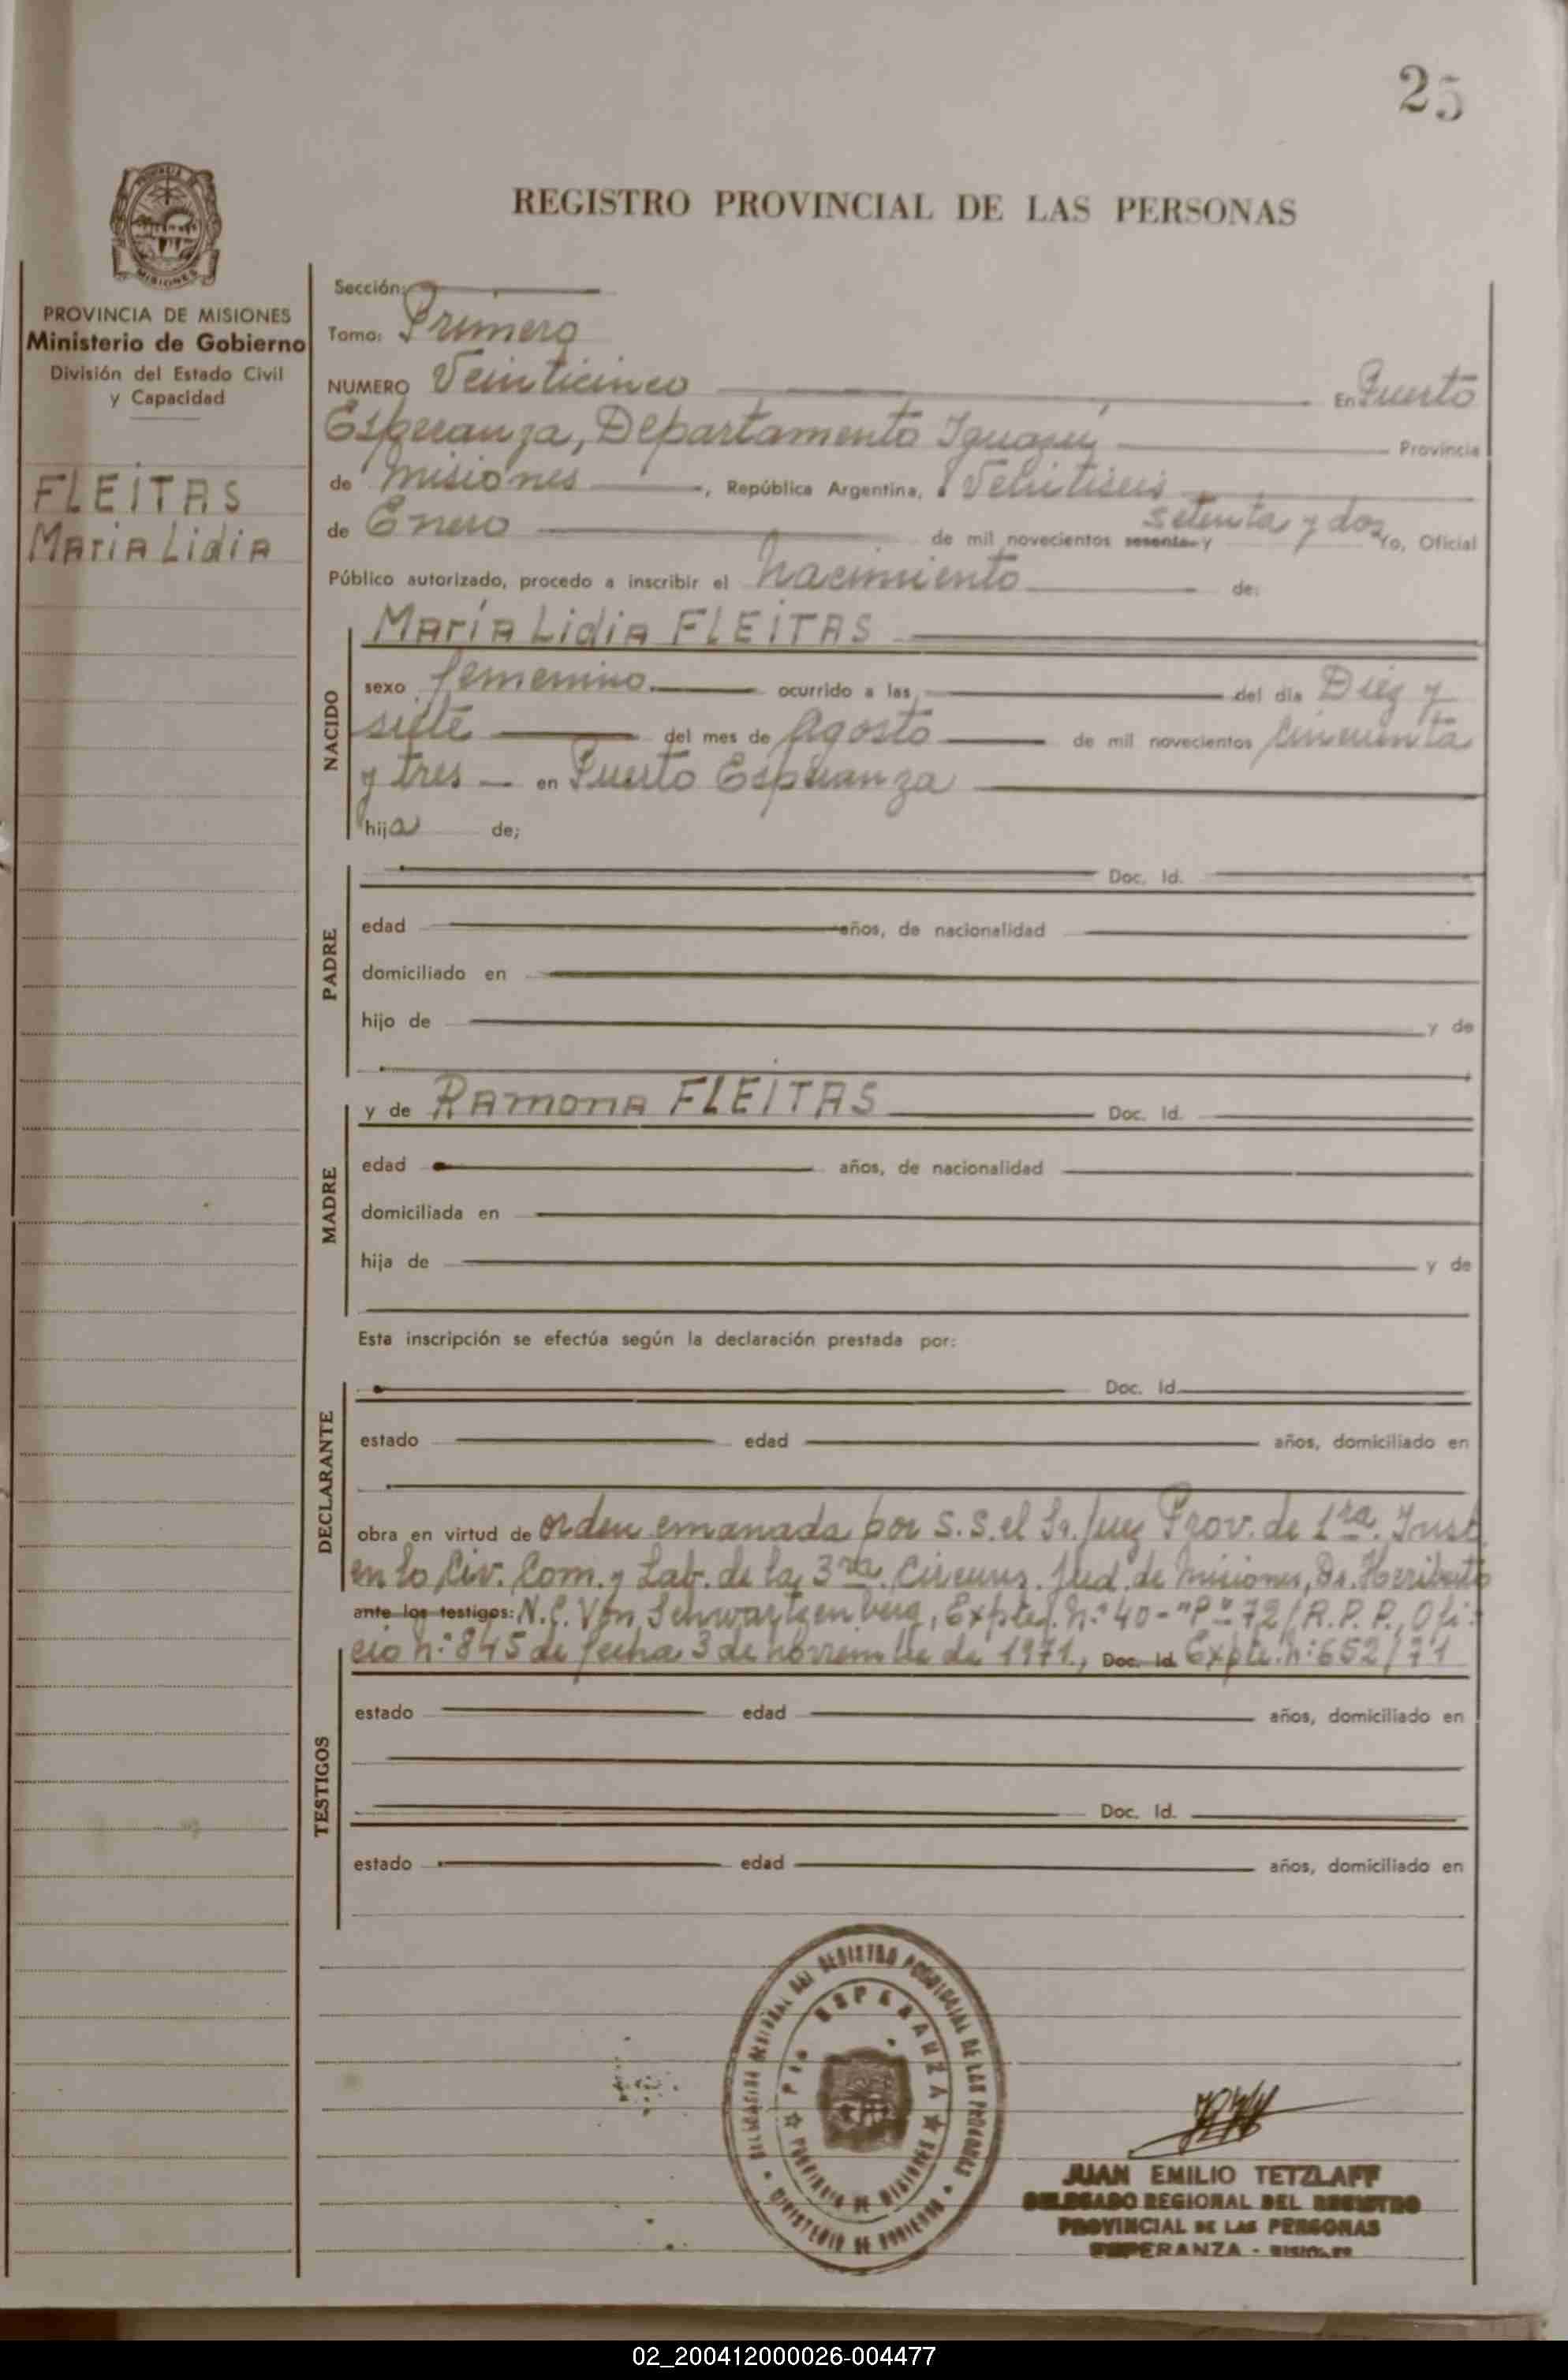 25
REGISTRO PROVINCIAL DE LAS PERSONAS
PROVINCIA DE MISIONES
Ministerio de Gobierno
División del Estado Civil
y Capacidad
FLEITAS
María Lidia
Sección:
Tomo: Primero
NUMERO Veinticinco En Puerto
Esperanza, Departamento Iguazú Provincia
de Misiones, República Argentina, a Veintiseis
de Enero de mil novecientos sesenta y setenta y dos Yo, Oficial
Público autorizado, procedo a inscribir el nacimiento de:
NACIDO
María Lidia FLEITAS
sexo femenino ocurrido a las del día Diez y
siete del mes de Agosto de mil novecientos cincuenta
y tres en Puerto Esperanza
hija de;
PADRE
Doc. Id.
edad años, de nacionalidad
domiciliado en
hijo de y de
MADRE
y de Ramona FLEITAS Doc. Id.
edad años, de nacionalidad
domiciliada en
hija de y de
Esta inscripción se efectúa según la declaración prestada por:
DECLARANTE
Doc. Id.
estado edad años, domiciliado en
obra en virtud de orden emanada por S.S. el Sr. Juez Prov. de 1ra. Inst.
en lo Civ. Com. y Lab. de la 3ra. Circuns. Jud. de Misiones, Dr. Heriberto
ante los testigos: N.C. Von Schwartzenberg, Expted. N:° 40-"P"-72/R.P.P., Ofi-
cio n:° 845 de fecha 3 de noviembre de 1971, Doc. Id. Expte. n:° 652/71
TESTIGOS
estado edad años, domiciliado en
Doc. Id.
estado edad años, domiciliado en
DELEGACION REGIONAL DEL REGISTRO PROVINCIAL DE LAS PERSONAS
MINISTERIO DE GOBIERNO
PTO ESPERANZA
PROVINCIA DE MISIONES
JUAN EMILIO TETZLAFF
DELEGADO REGIONAL DEL REGISTRO
PROVINCIAL DE LAS PERSONAS
ESPERANZA - MISIONES
02_200412000026-004477